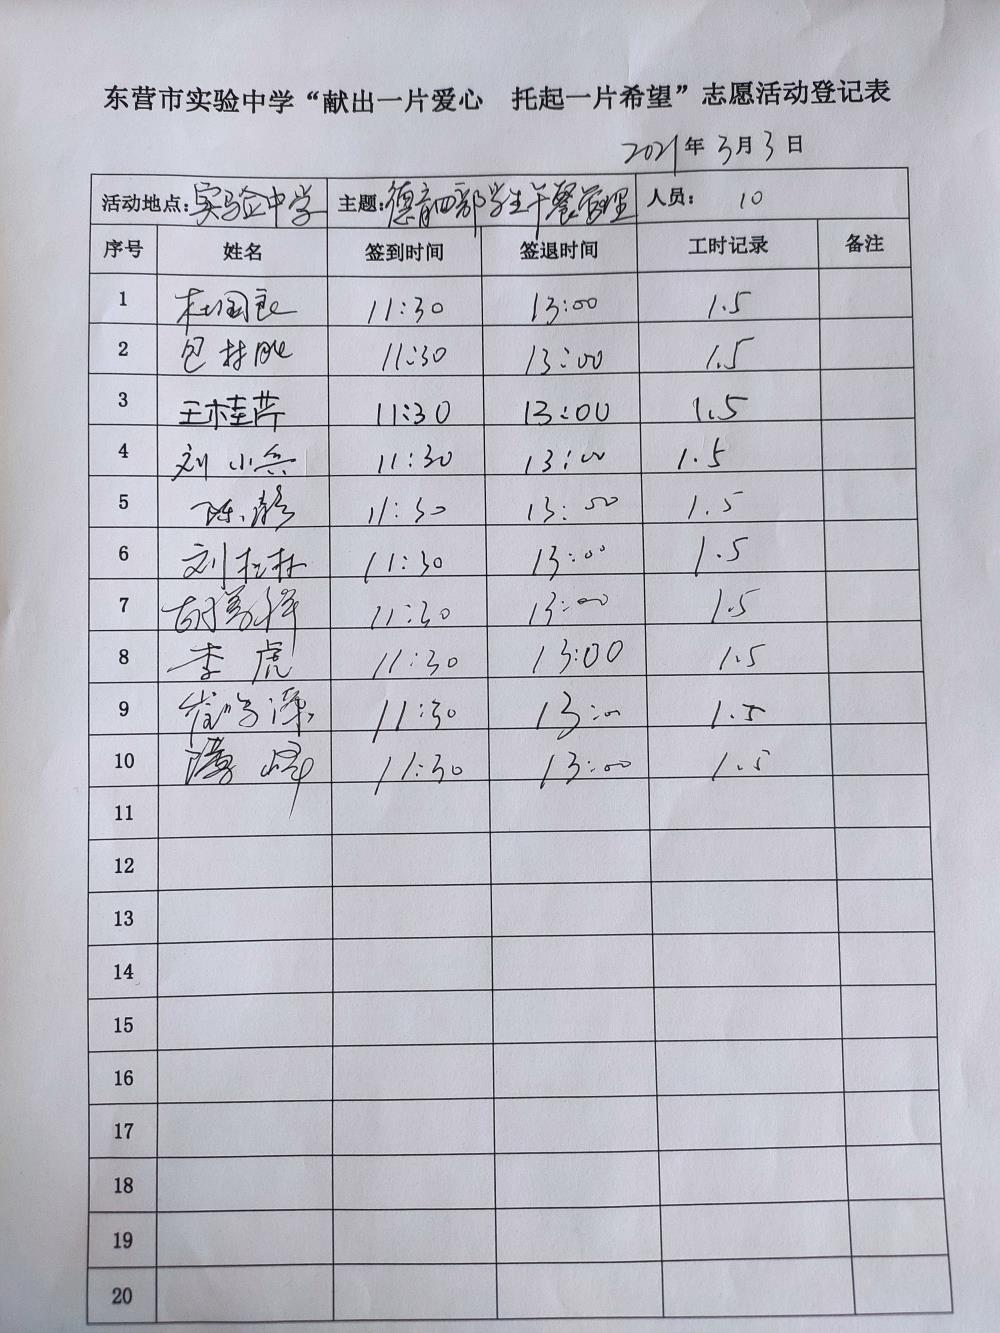 东营市实验中学“献出一片爱心 托起一片希望”志愿活动登记表
2021年3月3日
活动地点:实验中学 主题:德育四部学生午餐管理 人员: 10
序号 姓名 签到时间 签退时间 工时记录 备注
1 杜国良 11:30 13:00 1.5
2 包林 11:30 13:00 1.5
3 王桂芹 11:30 13:00 1.5
4 刘小兵 11:30 13:00 1.5
5 陈静 11:30 13:00 1.5
6 刘杜林 11:30 13:00 1.5
7 胡 11:30 13:00 1.5
8 李虎 11:30 13:00 1.5
9 崔 11:30 13:00 1.5
10 薄峰 11:30 13:00 1.5
11
12
13
14
15
16
17
18
19
20